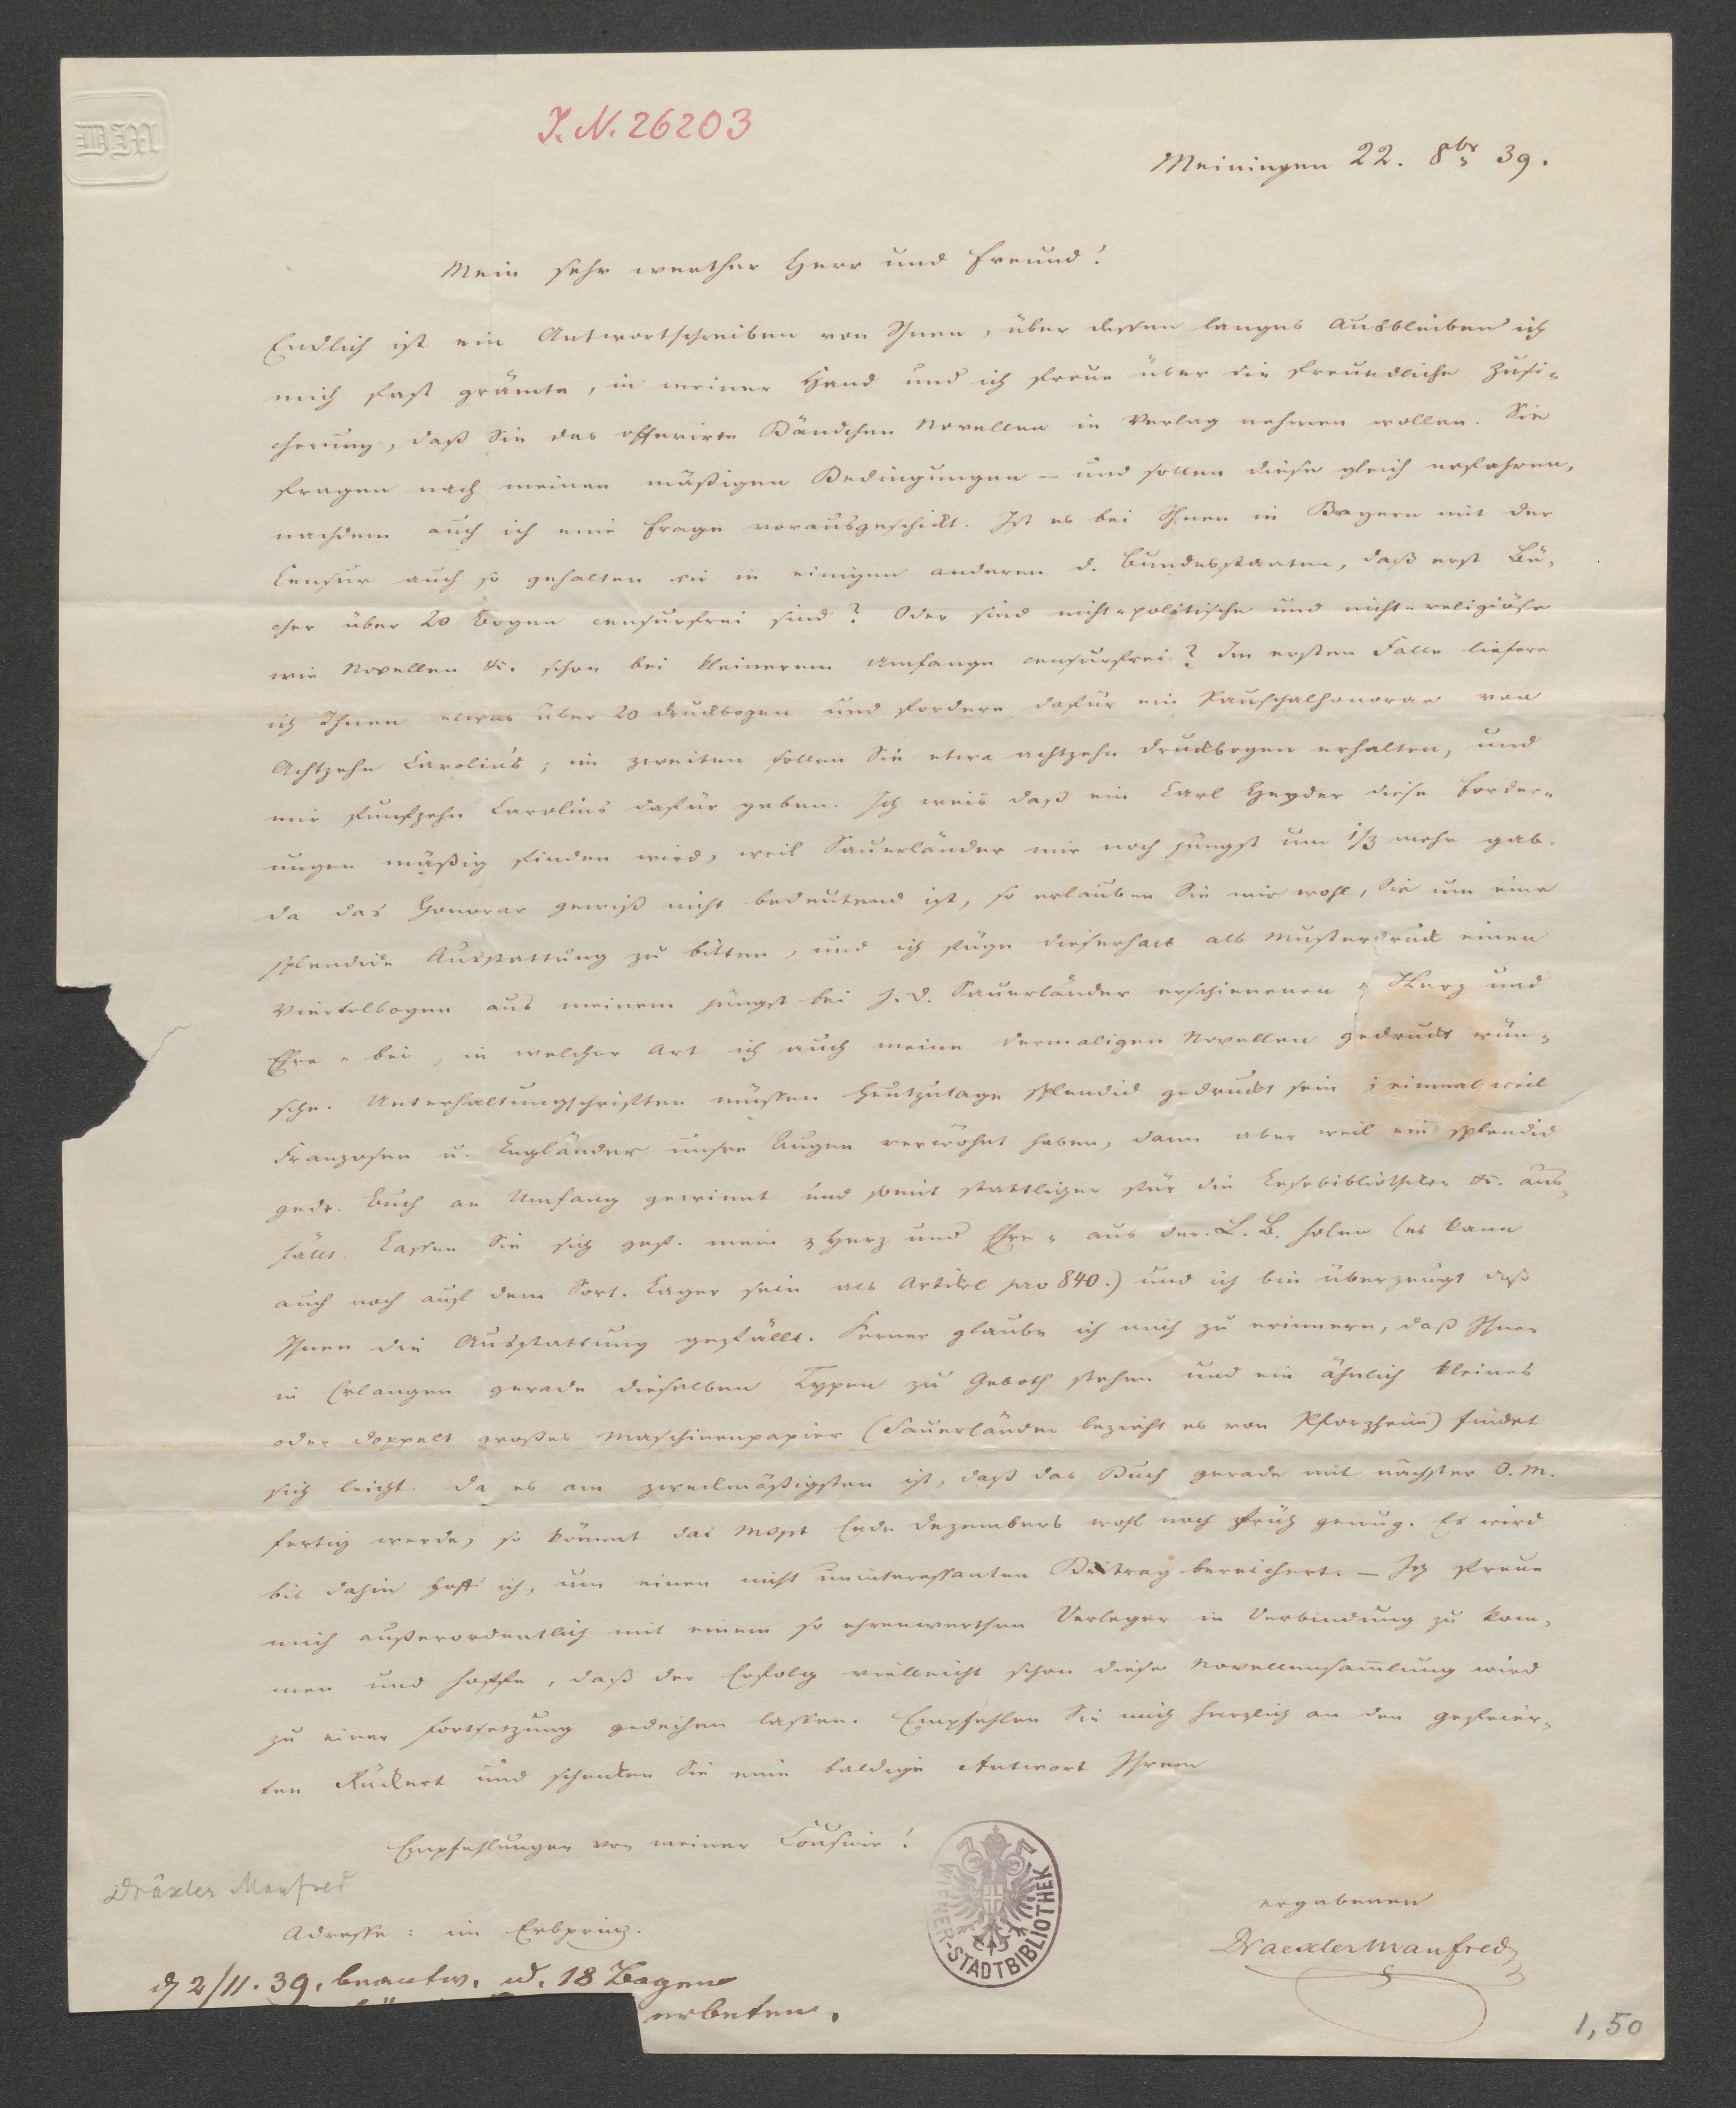 DM
I. N. 26203
Meiningen 22. 8br 39.
Mein sehr werther Herr und Freund!
Endlich ist ein Antwortschreiben von Ihnen, über dessen langes Ausbleiben ich
mich fast grämte, in meiner Hand und ich freue über die freundliche Zusi-
cherung, daß Sie das offerirte Bändchen Novellen in Verlag nehmen wollen. Sie
fragen nach meinen mäßigen Bedingungen – und sollen diese gleich erfahren,
nachdem auch ich eine Frage vorausgeschickt. Ist es bei Ihnen in Bayern mit der
Censur auch so gehalten wie in einigen anderen d. Bundesstaaten, daß erst Bü-
cher über 20 Bogen censurfrei sind? Oder sind nicht-politische und nicht-religiöse
wie Novellen etc. schon bei kleinerem Umfange censurfrei? Im ersten Falle liefere
ich Ihnen etwas über 20 Druckbogen und fordere dafür ein Pauschalhonorar von
Achtzehn Carolins; im zweiten sollen Sie etwa achtzehn Druckbogen erhalten, und
mir fünfzehn Carolins dafür geben. Ich weis daß ein Carl Heyder diese Forder-
ungen mäßig finden wird, weil Sauerländer mir noch jüngst um 1/3 mehr gab.
Da das Honorar gewiß nicht bedeutend ist, so erlauben Sie mir wohl, Sie um eine
splendide Ausstattung zu bitten, und ich füge dieserhalb als Musterdruck einen
Viertelbogen aus meinem jüngst bei J. D. Sauerländer erschienenen „Herz und
Ehre" bei, in welcher Art ich auch meine dermaligen Novellen gedruckt wün-
sche. Unterhaltungschriften müssen heutzutage splendid gedruckt sein; einmal weil
Franzosen u. Engländer unsre Augen verwöhnt haben, dann aber weil ein splendid
gedr. Buch an Umfang gewinnt und somit stattlicher für die Lesebibliotheken etc. aus-
fällt. Lassen Sie sich gef. mein „Herz und Ehre" aus der L. B. holen (es kann
auch noch auf dem Sort. Lager sein als Artikel pro 840.) und ich bin überzeugt daß
Ihnen die Ausstattung gefällt. Ferner glaube ich mich zu erinnern, daß Ihnen
in Erlangen gerade dieselben Typen zu Geboth stehen und ein ähnlich kleines
oder doppelt großes Maschinenpapier (Sauerländer bezieht es von Pforzheim) findet
sich leicht. Da es am zweckmäßigsten ist, daß das Buch gerade mit nächster O. M.
fertig werde, so kömmt das Mspt Ende Dezembers wohl noch früh genug. Es wird
bis dahin hoff' ich, um einen nicht uninteressanten Beitrag bereichert. – Ich freue
mich außerordentlich mit einem so ehrenwerthen Verleger in Verbindung zu kom-
men und hoffe, daß der Erfolg vielleicht schon diese Novellensammlung wird
zu einer Fortsetzung gedeihen lassen. Empfehlen Sie mich herzlich an den gefeier-
ten Rückert und schenken Sie eine baldige Antwort Ihrem
Empfehlungen von meiner Cousine!
Dräxler Manfred
ergebenen
Adresse: im Erbprinz.
DraexlerManfred
WIENER-STADTBIBLIOTHEK
d 2/11. 39. beantw. u. 18 Bogen
erbeten.
1,50